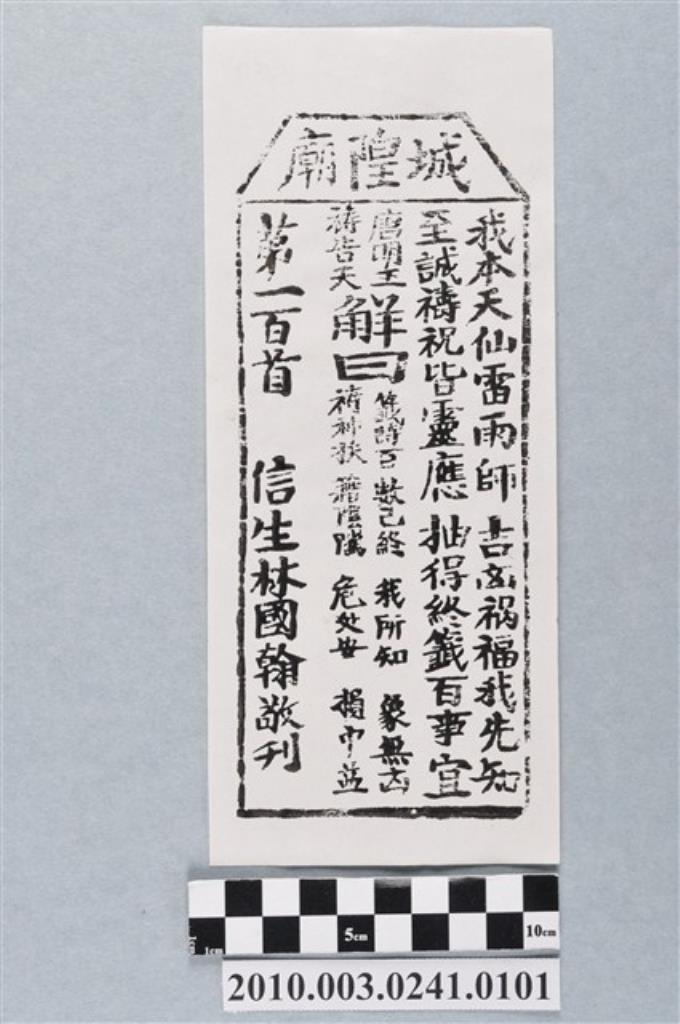 城隍廟
我本天仙雷雨師 吉凶禍福我先知
至誠禱祝皆靈應 抽得終籤百事宜
唐明王
禱告天
解曰
籤詩百 數已終 我所知 象無凶
禱神扶 籍陰隲 危处安 損中益
第一百首 信生林國翰敬刊
1cm 5cm 10cm
2010.003.0241.0101